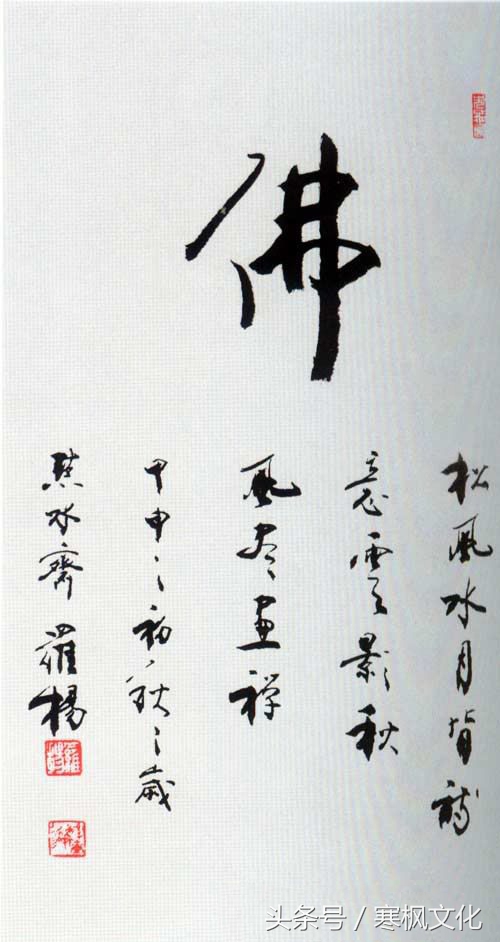 佛
松風水月皆詩
意雲影秋
風尽畫禅
甲申之初秋之歲
點水齋 羅楊
头条号 / 寒枫文化